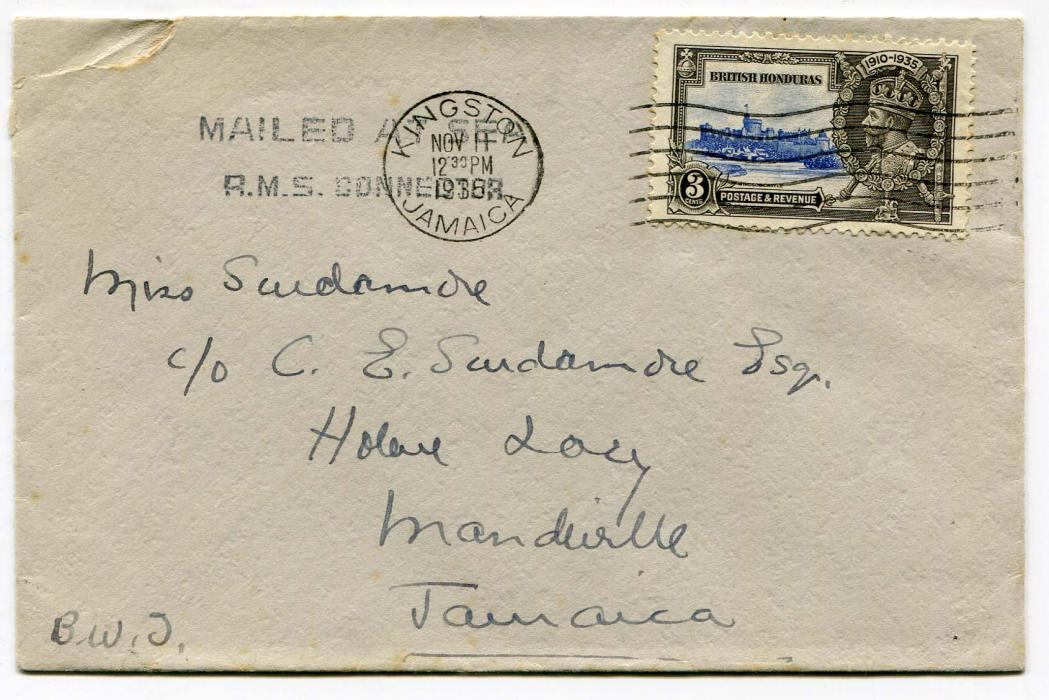 MAILED AT SEA
R.M.S. CONNECTOR
KINGSTON
NOV 11
12 30 PM
1938
JAMAICA
1910-1935
BRITISH HONDURAS
3
CENTS
POSTAGE & REVENUE
Miss Scudamore
c/o C. E. Scudamore Esq.
Holme Lacy
Mandeville
Jamaica
B.W.I.